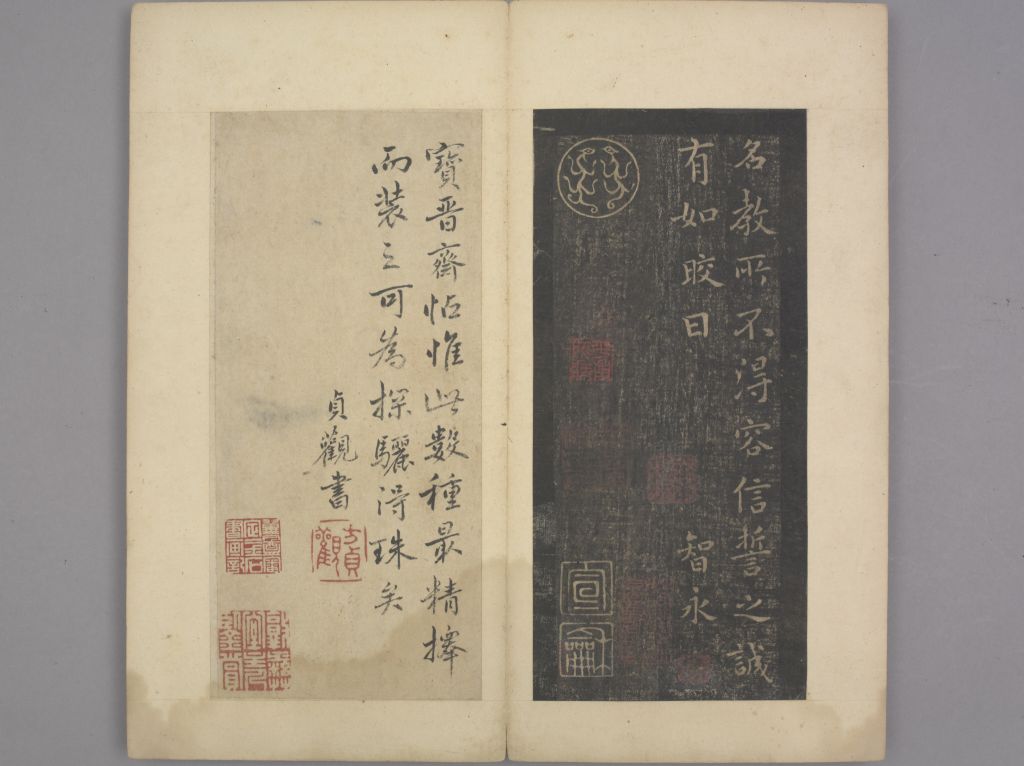 名教所不得容信誓之誠
有如皎日　智永
宣
龢
寶晉齋帖惟此數種最精擇
而裝之可為探驪得珠矣
貞觀書
貞觀